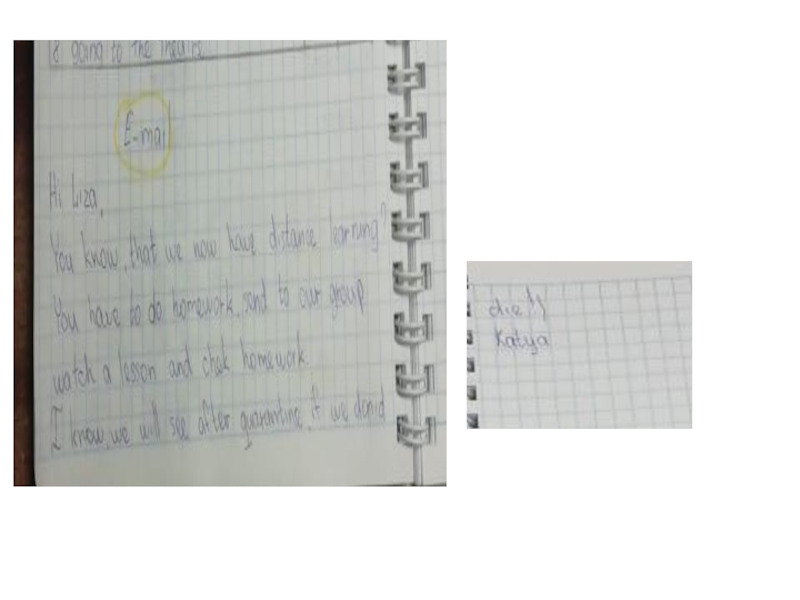 8 going to the theatre
E-mail
Hi Liza,
You know, that we now have distance learning?
You have to do homework, send to our group
watch a lesson and chek homework.
I know, we will see after quarantine, if we don,d
die!!)
Katya